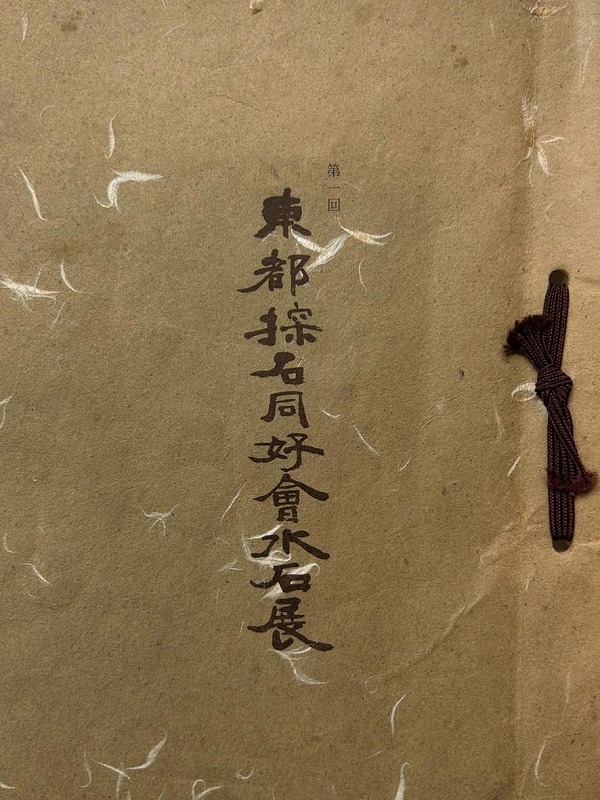 第一回
東都探石同好會水石展